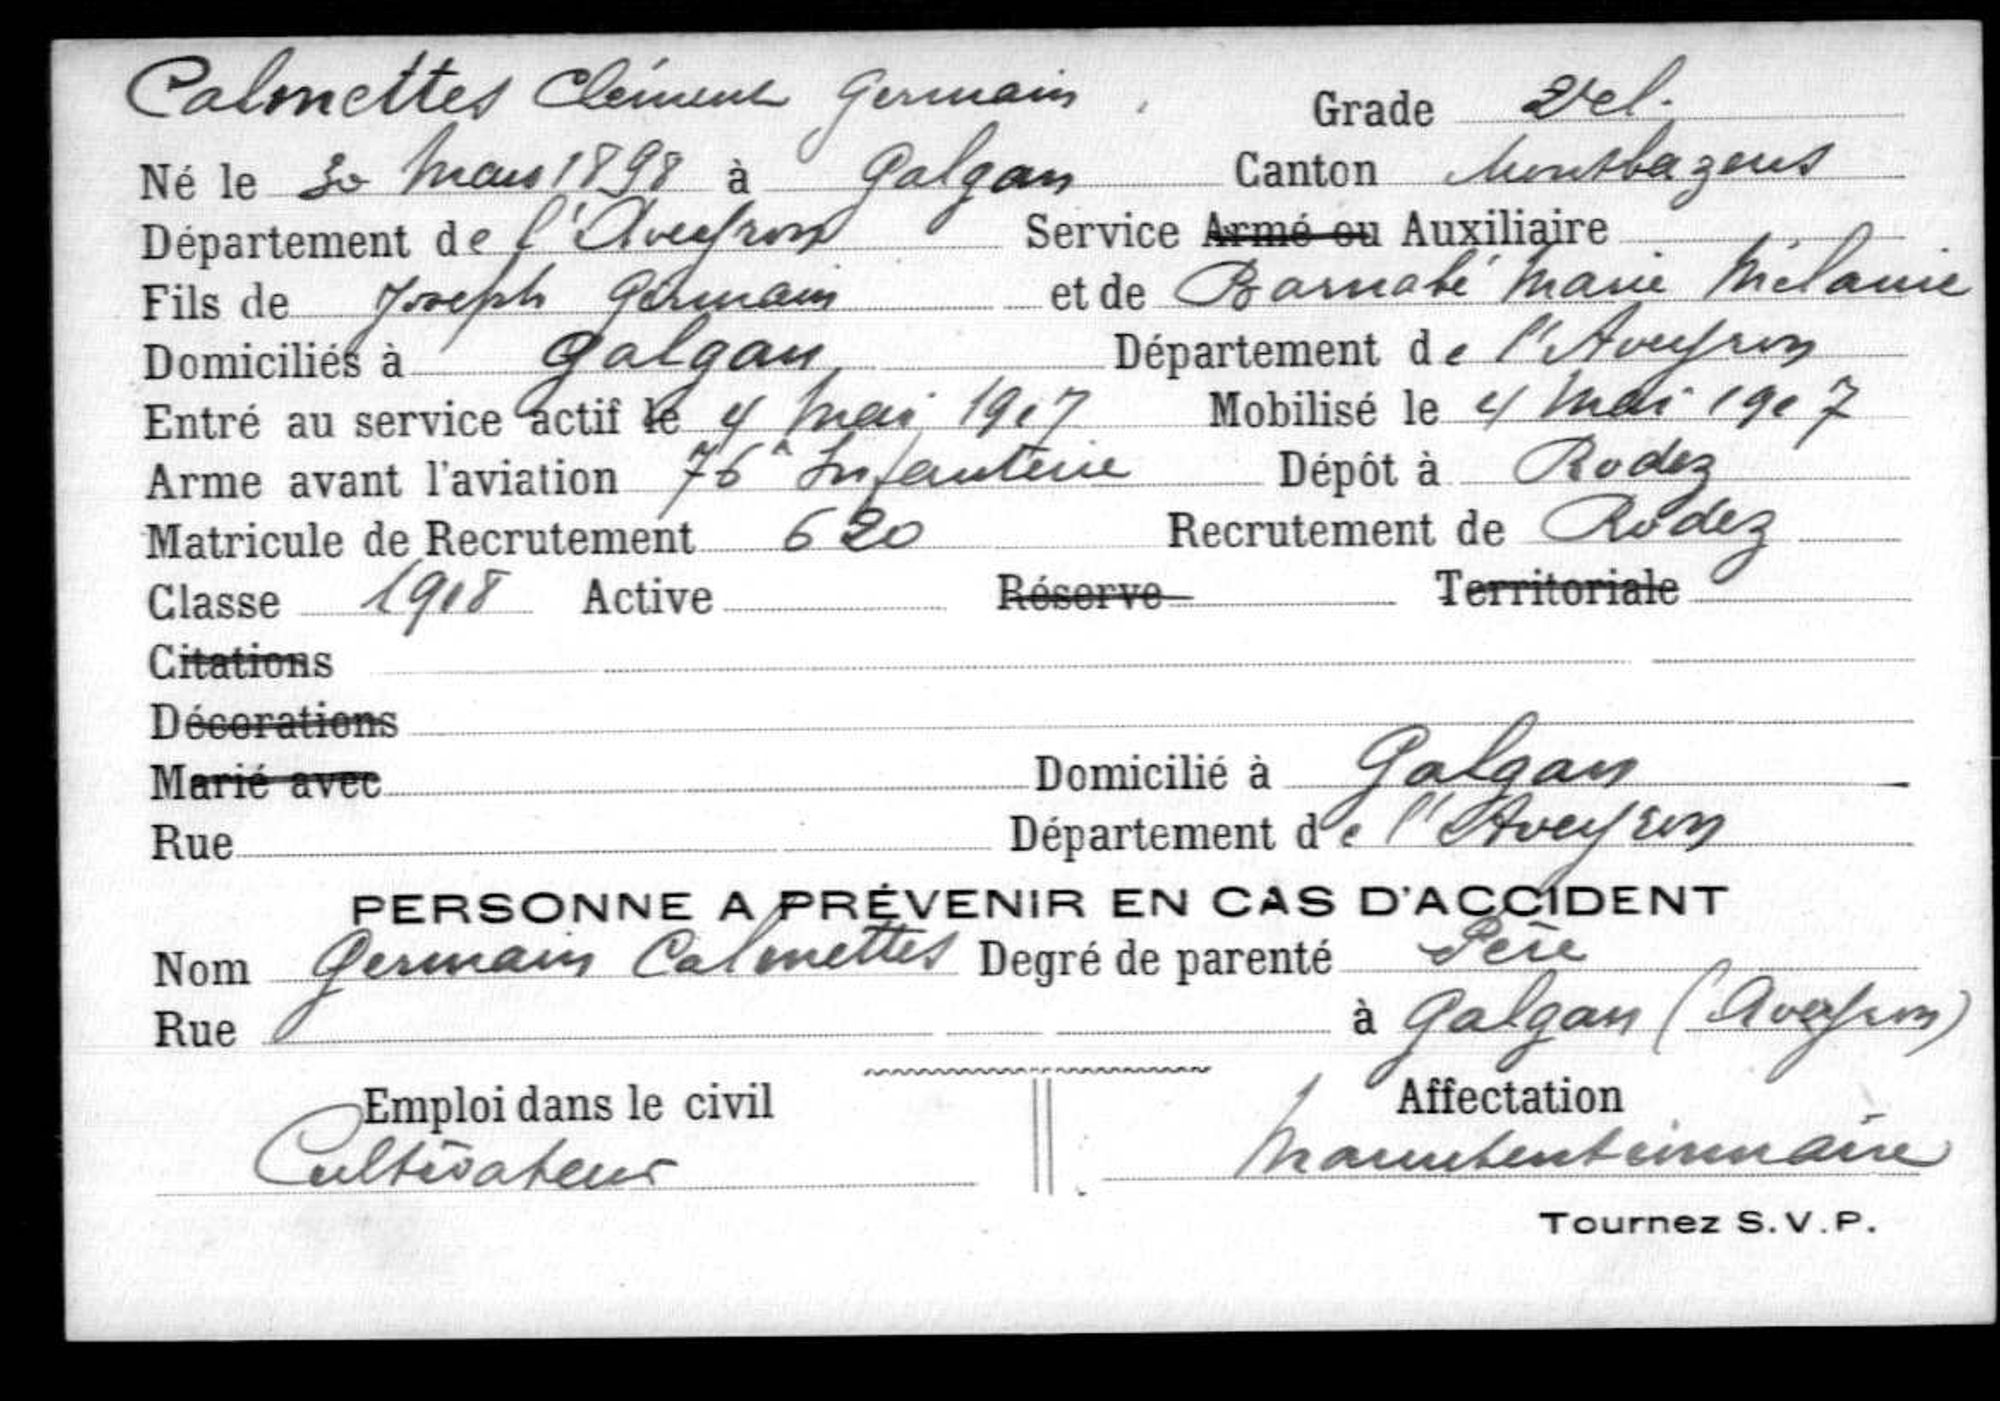 Calmettes Clément Germain Grade 2e cl.
Né le 30 Mars 1898 à Galgan Canton Montbazens
Département de l'Aveyron Service Armé ou Auxiliaire
Fils de Joseph Germain et de Barnabé Marie Mélanie
Domiciliés à Galgan Département de l'Aveyron
Entré au service actif le 4 Mai 1917 Mobilisé le 4 Mai 1917
Arme avant l'aviation 76e Infanterie Dépôt à Rodez
Matricule de Recrutement 620 Recrutement de Rodez
Classe 1918 Active Réserve Territoriale
Citations
Décorations
Marié avec Domicilié à Galgan
Rue Département de l'Aveyron
PERSONNE A PRÉVENIR EN CAS D'ACCIDENT
Nom Germain Calmettes Degré de parenté Père
Rue à Galgan (Aveyron)
Emploi dans le civil Affectation
Cultivateur Manutentionnaire
Tournez S.V.P.